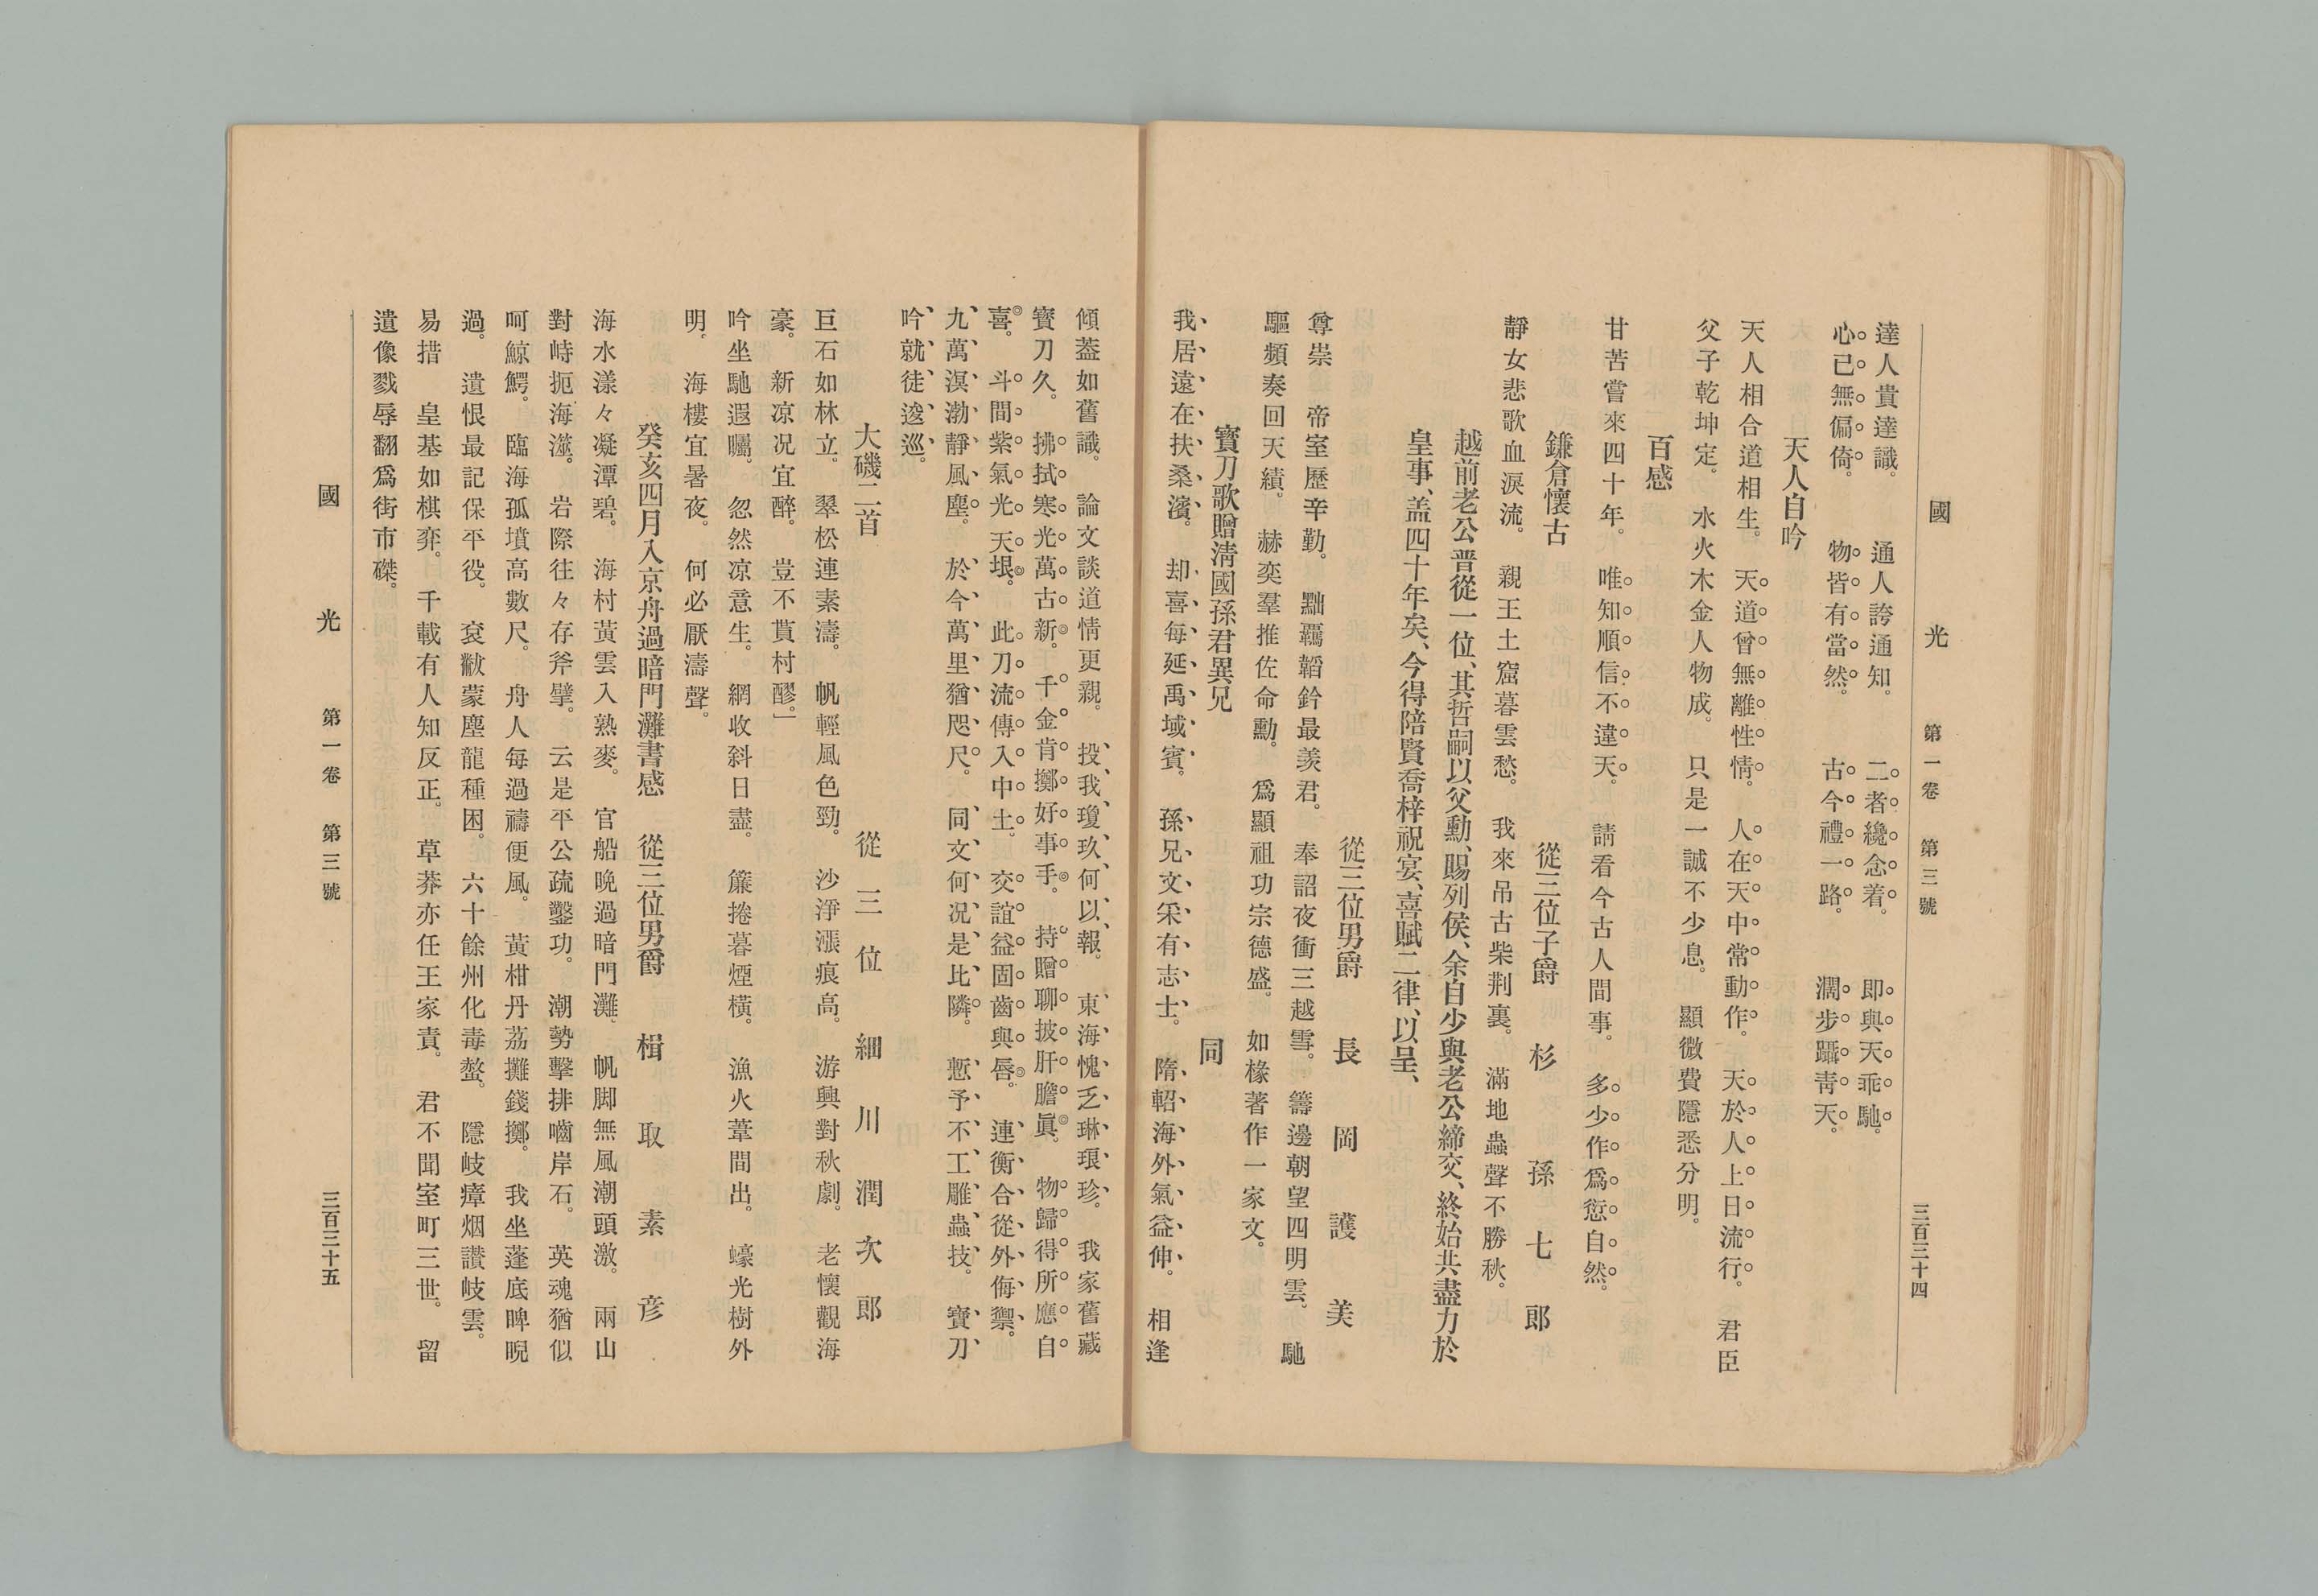 國光 第一卷 第三號 三百三十四
達人貴達識。 通人誇通知。 二者纔念着。 即與天乖馳。
心已無偏倚。 物皆有當然。 古今禮一路。 濶步躡靑天。
天人自吟
天人相合道相生。 天道曾無離性情。 人在天中常動作。 天於人上日流行。 君臣
父子乾坤定。 水火木金人物成。 只是一誠不少息。 顯微費隱悉分明。
百感
甘苦嘗來四十年。 唯知順信不違天。 請看今古人間事。 多少作爲愆自然。
鎌倉懷古 從三位子爵 杉孫七郎
靜女悲歌血淚流。 親王土窟暮雲愁。 我來吊古柴荆裏。 滿地蟲聲不勝秋。
越前老公晋從一位、其哲嗣以父勳、賜列侯、余自少與老公締交、終始共盡力於
皇事、盖四十年矣、今得陪賢喬梓祝宴、喜賦二律、以呈、
從三位男爵 長岡護美
尊崇 帝室歷辛勤。 黜覊韜鈐最羨君。 奉詔夜衝三越雪。 籌邊朝望四明雲。 馳
驅頻奏回天績。 赫奕羣推佐命勳。 爲顯祖功宗德盛。 如椽著作一家文。
寳刀歌贈淸國孫君異兄 同
我居遠在扶桑濱。 却喜每延禹域賓。 孫兄文采有志士。 隋軺海外氣益伸。 相逢
傾葢如舊識。 論文談道情更親。 投我瓊玖何以報。 東海愧乏琳琅珍。 我家舊藏
寳刀久。 拂拭寒光萬古新。 千金肯擲好事手。 持贈聊披肝膽眞。 物歸得所應自
喜。 斗間紫氣光天垠。 此刀流傳入中土。 交誼益固齒與唇。 連衡合從外侮禦。
九萬溟渤靜風塵。 於今萬里猶咫尺。 同文何况是比隣。 慙予不工雕蟲技。 寳刀
吟就徒逡巡。
大磯二首 從三位 細川潤次郎
巨石如林立。 翠松連素濤。 帆輕風色勁。 沙淨漲痕高。 游興對秋劇。 老懷觀海
豪。 新凉况宜醉。 豈不貰村醪。」
吟坐馳遐矚。 忽然凉意生。 網收斜日盡。 簾捲暮煙橫。 漁火葦間出。 蠔光樹外
明。 海樓宜暑夜。 何必厭濤聲。
癸亥四月入京舟過暗門灘書感 從三位男爵 楫取素彦
海水漾々凝潭碧。 海村黃雲入熟麥。 官船晚過暗門灘。 帆脚無風潮頭激。 兩山
對峙扼海澨。 岩際往々存斧擘。 云是平公疏鑿功。 潮勢擊排嚙岸石。 英魂猶似
呵鯨鰐。 臨海孤墳高數尺。 舟人每過禱便風。 黃柑丹荔攤錢擲。 我坐蓬底睥睨
過。 遺恨最記保平役。 袞黻蒙塵龍種困。 六十餘州化毒螫。 隱岐瘴烟讃岐雲。
易措 皇基如棋弈。 千載有人知反正。 草莽亦任王家責。 君不聞室町三世。 留
遺像戮辱翻爲街市磔。
國光 第一卷 第三號 三百三十五